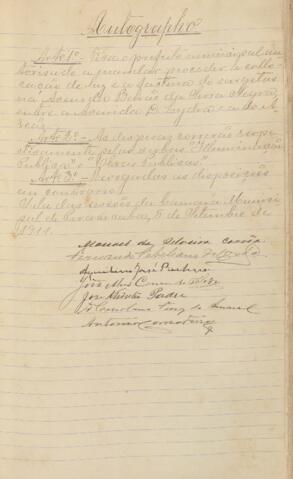 Autographo
Art. 1º - Fica o prefeito municipal au
torisado a mandar proceder a collo
cação de luz e a factura de sargetas
na Avenida Barão da Serra Negra,
entre a Avenida D. Lydia e a do
Art. 2º - As despesas correrão respe
ctivamente pelas verbas "Illuminação
Publica" e "Obras Publicas".
Art. 3º - Revogadas as disposições
em contrario.
Sala das sessões da Camara Munici
pal de Piracicaba, 5 de Setembro de
1911.
Manoel da Silveira Corrêa
Fernando Febeliano da Costa
José
José
Antonio